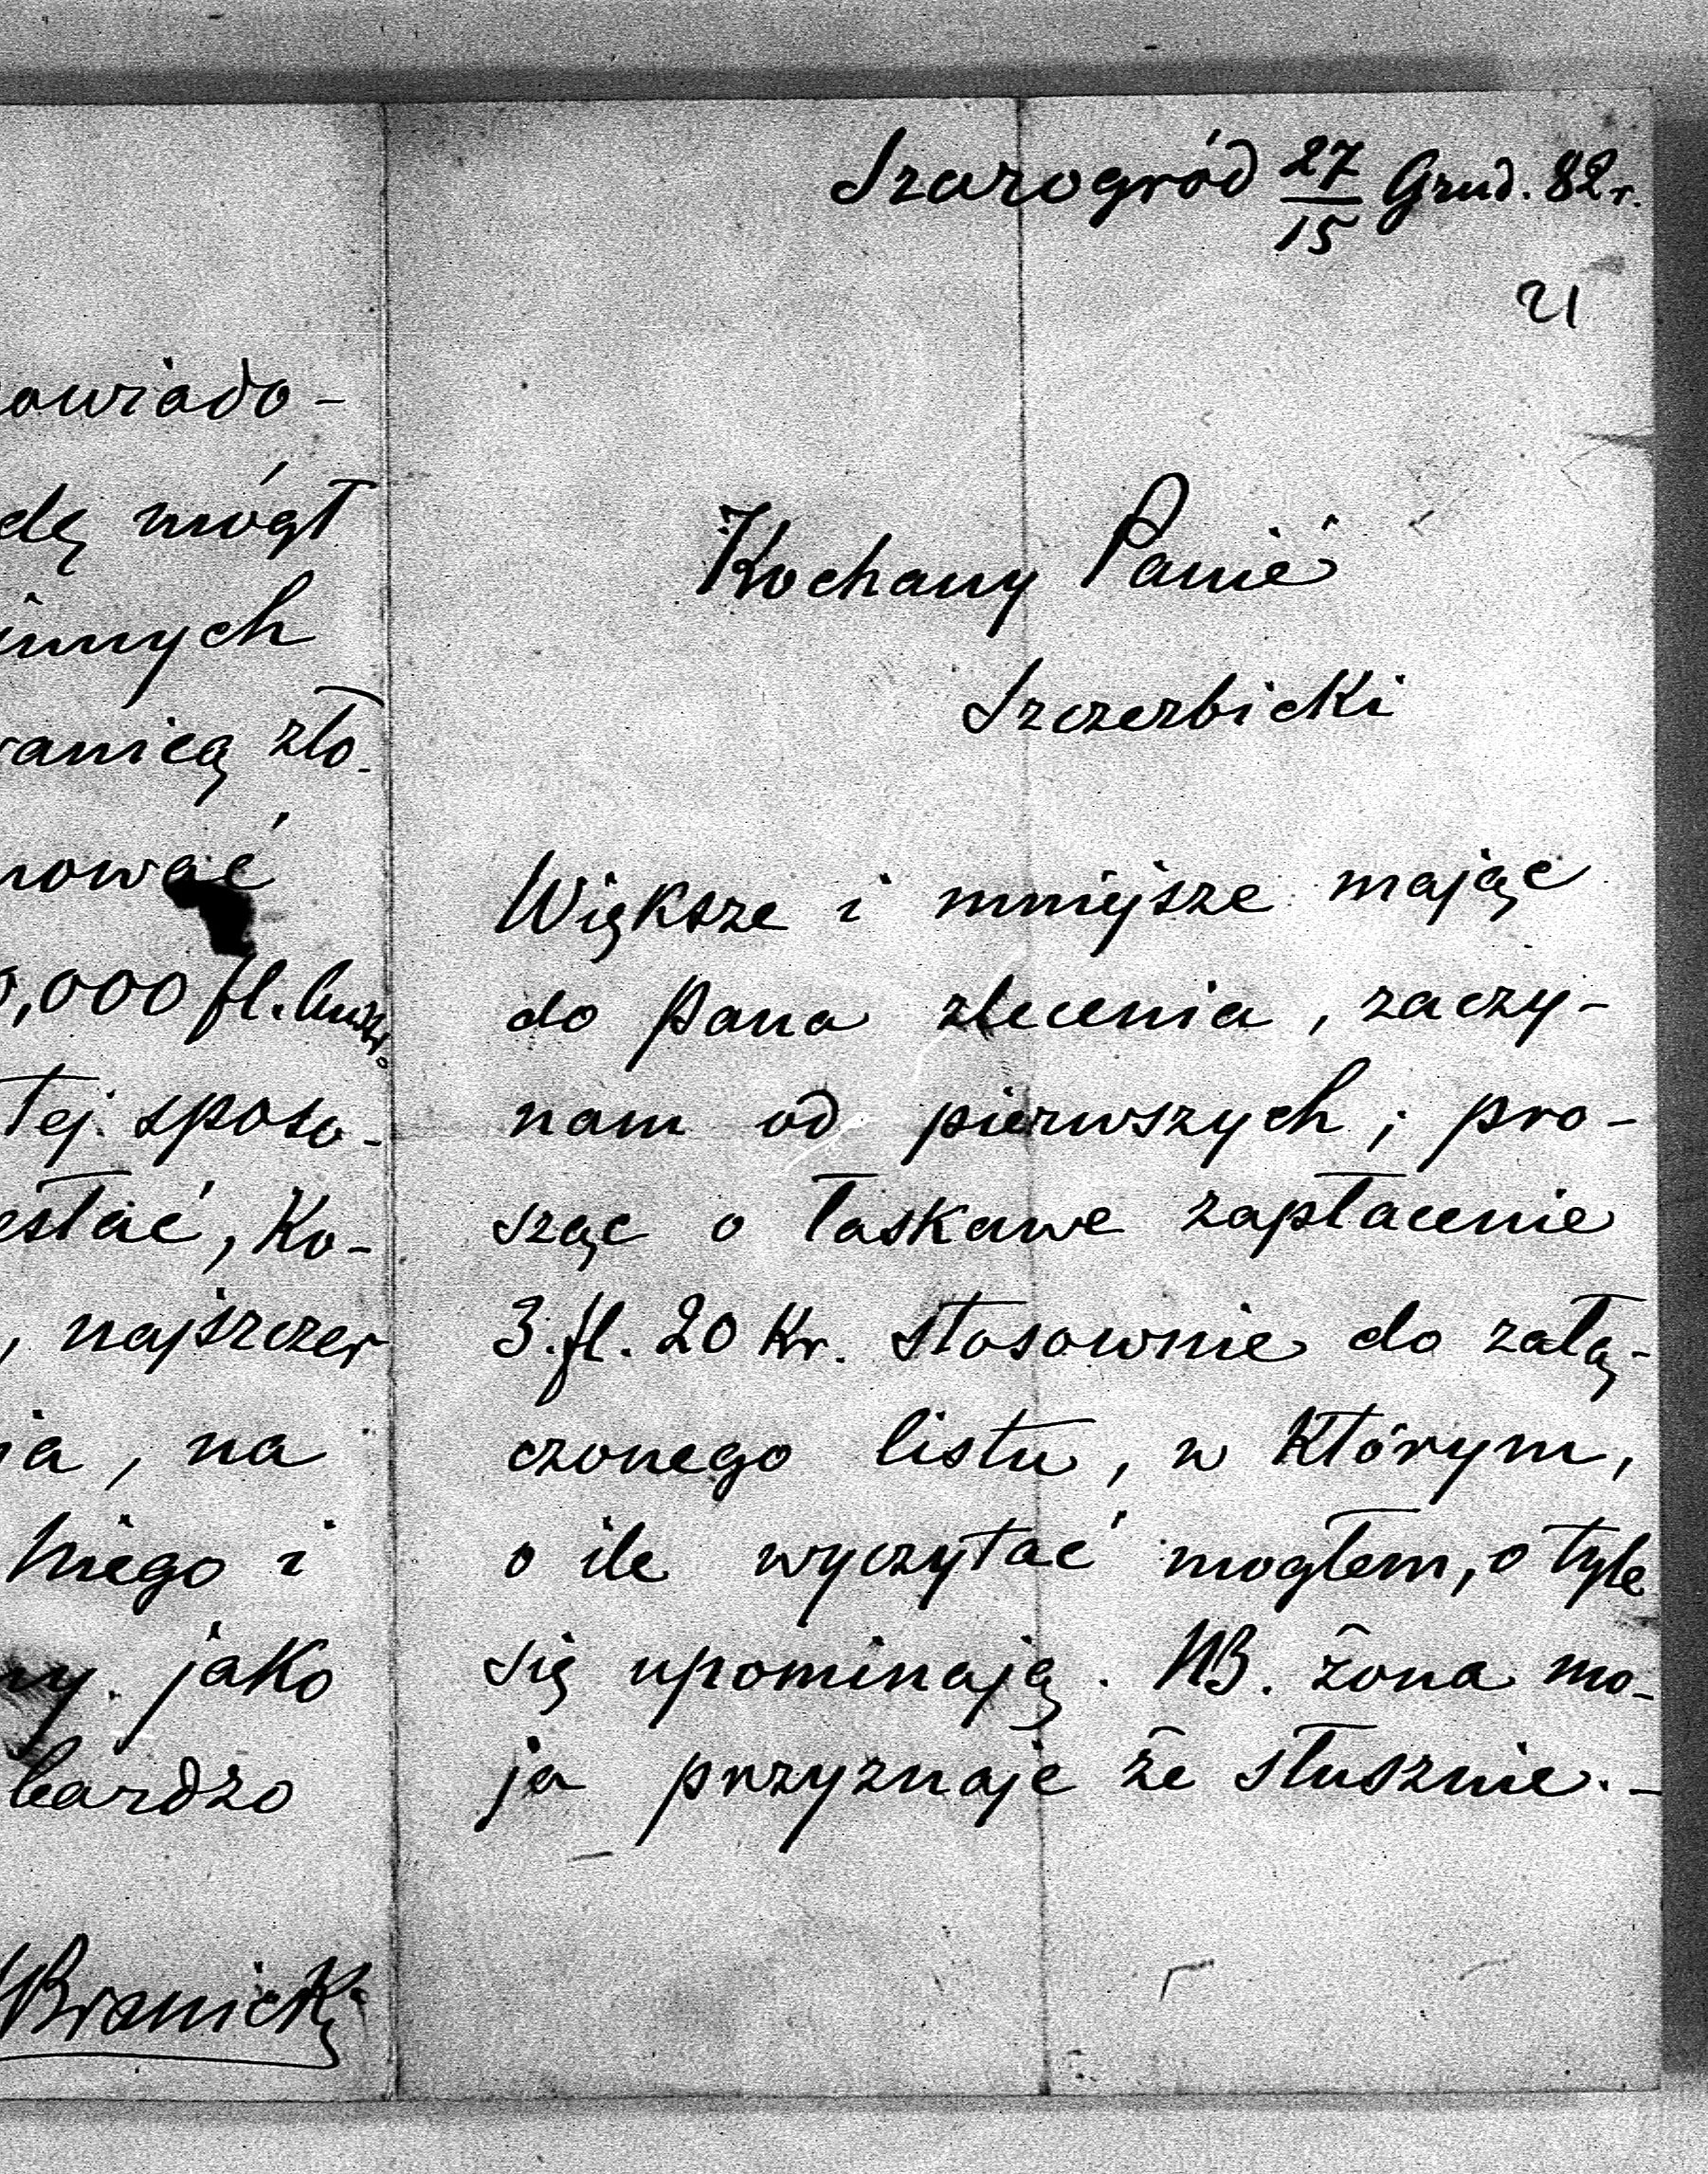 owiado-
dę mógł
innych
ranicą zło-
nować
0,000 fl.
tej sposo-
esłać, Ko-
, najszczer
ia, na
niego i
ny jako
bardzo
WBranicki
Szarogród 27/15 Grud. 82 r.
21
Kochany Panie
Szczerbicki
Większe i mniejsze mając
do Pana zlecenia, zaczy-
nam od pierwszych; pro-
sząc o łaskawe zapłacenie
3. fl. 20 Kr. stosownie do załą-
czonego listu, w którym,
o ile wyczytać mogłem, o tyle
się upominają. NB. żona mo-
ja przyznaje że słusznie. -